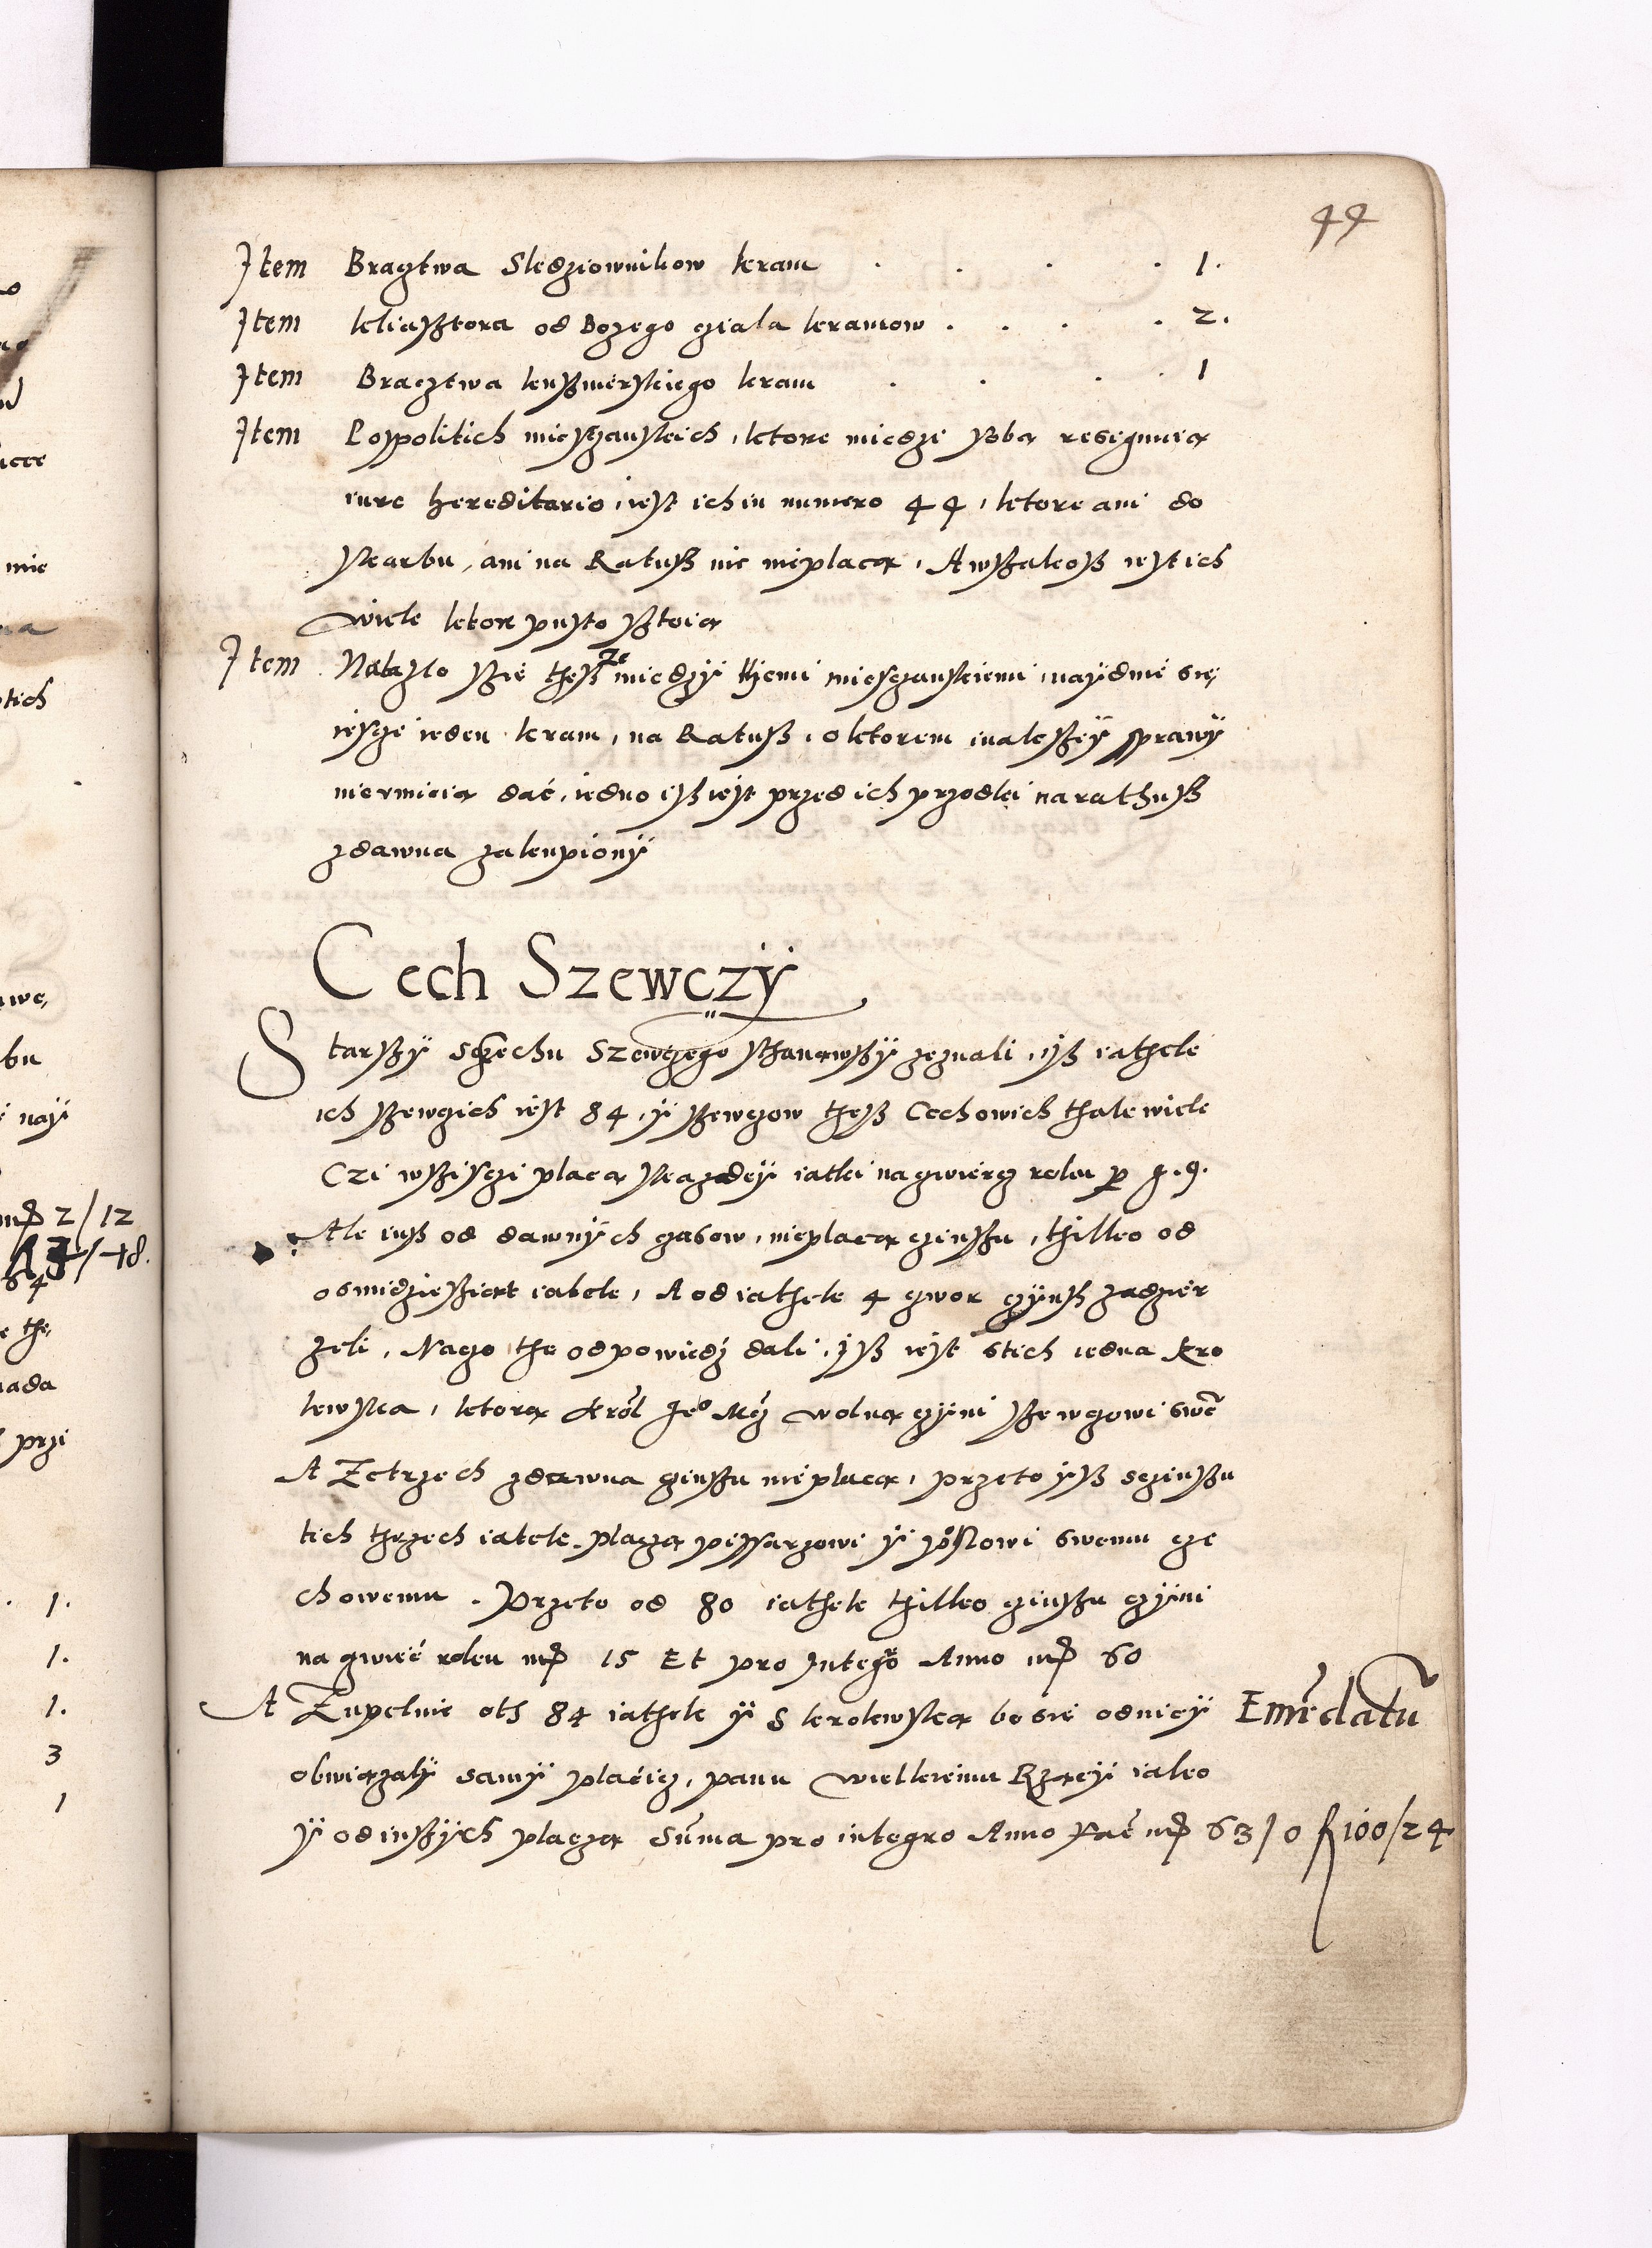 44
Item Bracztwa Sledziownikow kram . . . . 1.
Item kliasztora od Bozego ziala kramow . . . . 2.
Item Bracztwa kusmierskiego kram . . . . 1
Item Pospolitich mieszanskich, ktore miedzi soba resignuia
iure hereditario, iest ich in numero 44, ktore ani do
skarbu, ani na Ratusz nic nieplaca, A wszakosz iest ich
wiele ktore pusto sztoia
Item Nalazlo szie thesz ze miedzÿ themi miesczanskiemi, naÿdmie się
iescze ieden kram, na Ratusz, o ktorem inakszeÿ sprawÿ
nieumieia dać, iedno isz iest przed ich przodki na rathusz
zdawna zakupionÿ
Cech SzewczÿStarszÿ sczechu Szewczego sthanąwszÿ zeznali, isz iathek
ich szewczich iest 84, ÿ szewczow thesz Cechowich thak wiele
Czi wszisczi placa skazdeÿ iatki na czwiercz roku per g. 9.
Ale iusz od dawnÿch czasow, nieplaca czinszu, thilko od
osmidziesziąt iatek, A od iathek 4 czwor czÿnsz zadzier
zeli, Naczo the odpowiedz dali, isz iest stich iedna Kro
lewska, ktora Król Jeo Mcz wolna czÿni szewczowi swe
A Zetrzech zdawna czinszu nieplaca, przeto ÿsz sczinszu
tich trzech iatek, placza pissarzowi ÿ poslowi swemu cze
chowemu. Przeto od 80 iathek thilko czinszu czÿni
na czwierć roku mr 15 Et pro Integro Anno mr 60
A Zupelnie oth 84 iathek ÿ S krolewska bo sie odnieÿ
obwiązalÿ samÿ placicz, panu wielkiemu Rządci iako
ÿ od inszÿch placza Suma pro integro Anno fac mr 63/0 f 100/24
Emendatum
mr 2/12